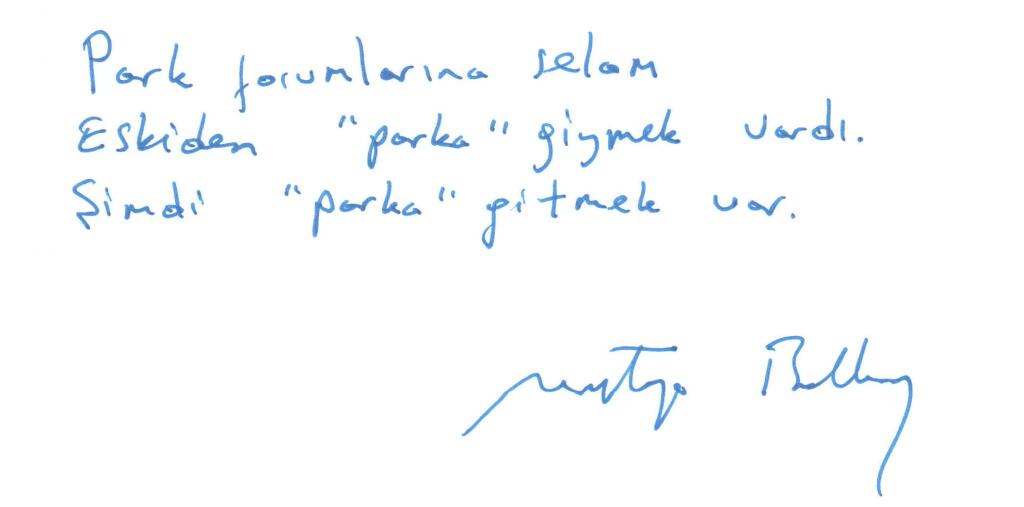 Park forumlarına selam
Eskiden "parka" giymek vardı.
Şimdi "parka" gitmek var.
Mustafa Balbay